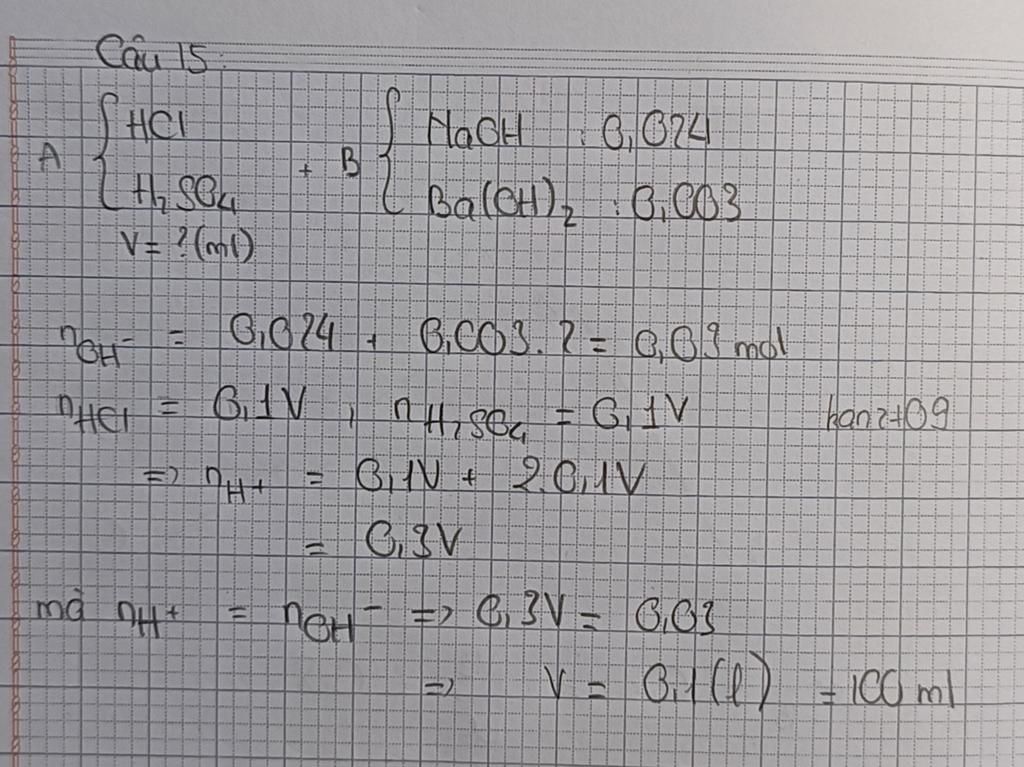 Câu 15:
A { HCl + B { NaOH : 0,024
H₂SO₄ Ba(OH)₂ : 0,003
V = ? (ml)
nOH⁻ = 0,024 + 0,003.2 = 0,03 mol
nHCl = 0,1V , nH₂SO₄ = 0,1V hanz+09
=> nH+ = 0,1V + 2.0,1V
= 0,3V
mà nH+ = nOH⁻ => 0,3V = 0,03
=> V = 0,1(l) = 100 ml